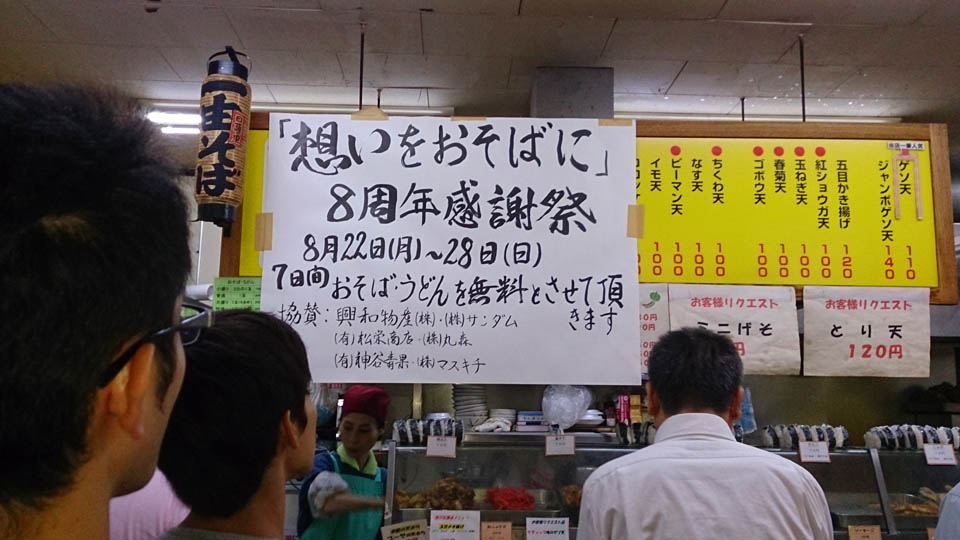 一由そば
「想いをおそばに」
8周年感謝祭
8月22日(月)~28日(日)
7日間おそば・うどんを無料とさせて頂きます
協賛:興和物産(株)・(株)サンダム
(有)松栄商店・(株)丸森
(有)神谷青果・(株)マスキチ
当店一番人気
ゲソ天 110
ジャンボゲソ天 140
五目かき揚げ 120
紅ショウガ天 100
玉ねぎ天 100
春菊天 100
ゴボウ天 100
ちくわ天 100
なす天 100
ピーマン天 100
イモ天 100
お客様リクエスト
ミニげそ
お客様リクエスト
とり天
120円